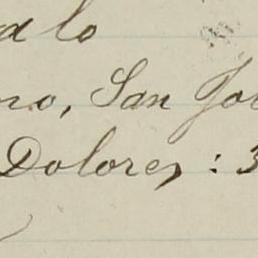 alo
no, San Jo
Dolores : 3